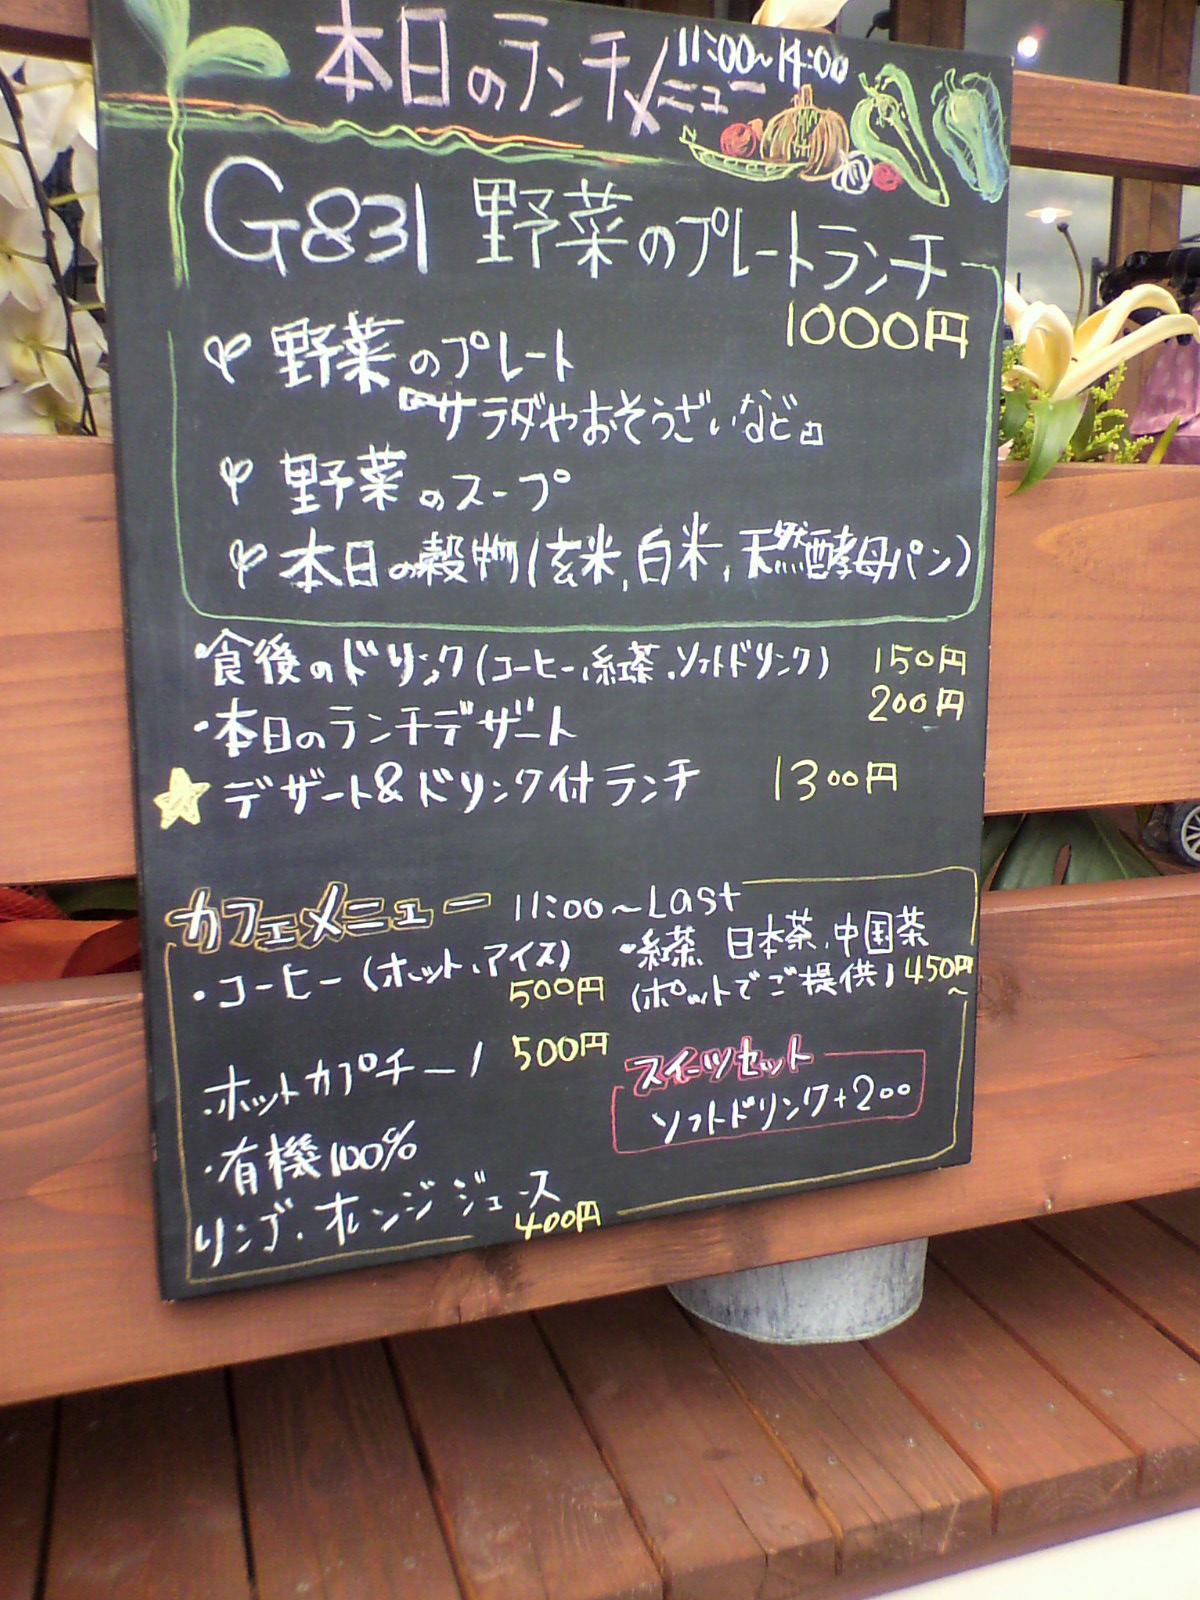 本日のランチメニュー 11:00~14:00
G831 野菜のプレートランチ
1000円
野菜のプレート
サラダやおそうざいなど
野菜のスープ
本日の穀物(玄米,白米,天然酵母パン)
・食後のドリンク(コーヒー、紅茶、ソフトドリンク) 150円
・本日のランチデザート 200円
デザート&ドリンク付ランチ 1300円
カフェメニュー 11:00~Last
・コーヒー(ホット、アイス)
500円
・ホットカプチーノ 500円
・有機100%
リンゴ・オレンジジュース
400円
・紅茶 日本茶、中国茶
(ポットでご提供) 450円~
スイーツセット
ソフトドリンク+200